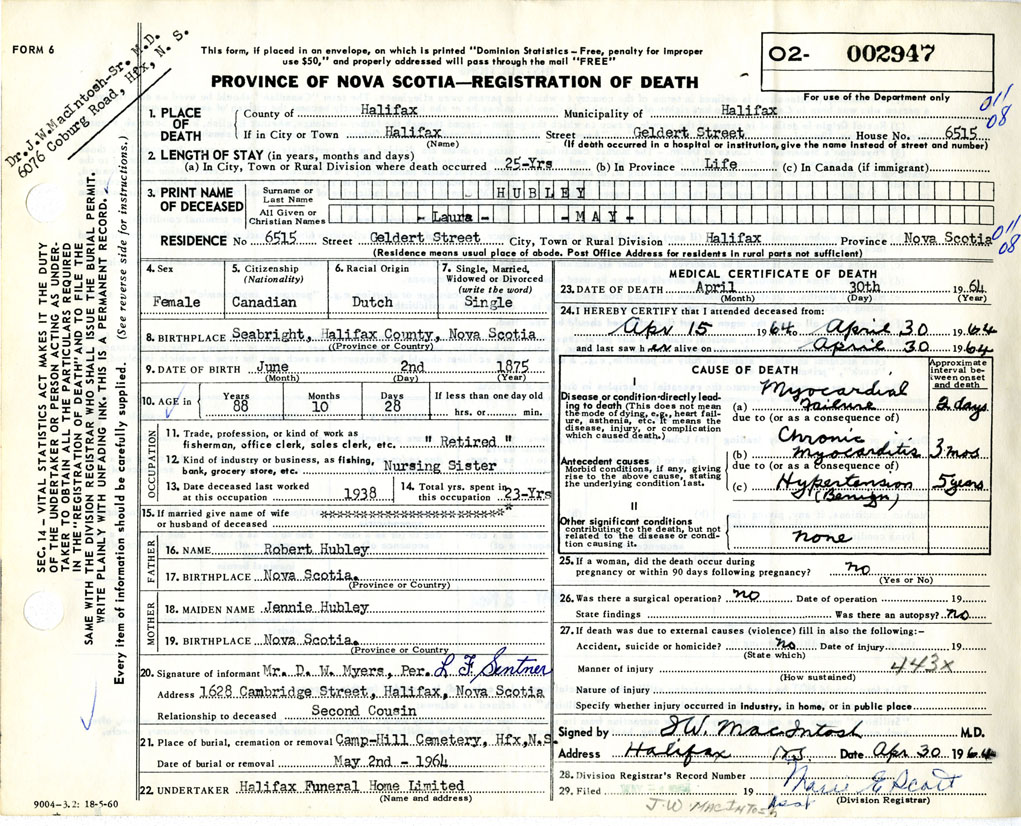 FORM 6
Dr.J.W.MacIntosh-Sr.M.D.
6076 Coburg Road, Hfx, N. S.
This form, if placed in an envelope, on which is printed "Dominion Statistics – Free, penalty for improper
use $50," and properly addressed will pass through the mail "FREE"
PROVINCE OF NOVA SCOTIA—REGISTRATION OF DEATH
O2- 002947
For use of the Department only
011
08
SEC. 14 – VITAL STATISTICS ACT MAKES IT THE DUTY
OF THE UNDERTAKER OR PERSON ACTING AS UNDER-
TAKER TO OBTAIN ALL THE PARTICULARS REQUIRED
IN THE "REGISTRATION OF DEATH" AND TO FILE THE
SAME WITH THE DIVISION REGISTRAR WHO SHALL ISSUE THE BURIAL PERMIT.
WRITE PLAINLY WITH UNFADING INK. THIS IS A PERMANENT RECORD.
Every item of information should be carefully supplied. (See reverse side for instructions.)
1. PLACE OF DEATH County of Halifax Municipality of Halifax
If in City or Town Halifax Street Geldert Street House No. 6515
(Name) (If death occurred in a hospital or institution, give the name instead of street and number)
2. LENGTH OF STAY (in years, months and days)
(a) In City, Town or Rural Division where death occurred 25-Yrs (b) In Province Life (c) In Canada (if immigrant)
3. PRINT NAME OF DECEASED Surname or Last Name HUBLEY
All Given or Christian Names - Laura - - MAY -
RESIDENCE No 6515 Street Geldert Street City, Town or Rural Division Halifax Province Nova Scotia
011
08
(Residence means usual place of abode. Post Office Address for residents in rural parts not sufficient)
4. Sex 5. Citizenship (Nationality) 6. Racial Origin 7. Single, Married, Widowed or Divorced (write the word)
Female Canadian Dutch Single
8. BIRTHPLACE Seabright, Halifax County, Nova Scotia
(Province or Country)
9. DATE OF BIRTH June 2nd 1875
(Month) (Day) (Year)
10. AGE in Years Months Days If less than one day old
88 10 28 hrs. or min.
OCCUPATION
11. Trade, profession, or kind of work as
fisherman, office clerk, sales clerk, etc. " Retired "
12. Kind of industry or business, as fishing,
bank, grocery store, etc. Nursing Sister
13. Date deceased last worked at this occupation 1938 14. Total yrs. spent in this occupation 23-Yrs
15. If married give name of wife
or husband of deceased ****************************
FATHER
16. NAME Robert Hubley
17. BIRTHPLACE Nova Scotia.
(Province or Country)
MOTHER
18. MAIDEN NAME Jennie Hubley
19. BIRTHPLACE Nova Scotia.
(Province or Country)
20. Signature of informant Mr. D. W. Myers, Per. L F. Sentner
Address 1628 Cambridge Street, Halifax, Nova Scotia
Relationship to deceased Second Cousin
21. Place of burial, cremation or removal Camp-Hill Cemetery, Hfx,N.S.
Date of burial or removal May 2nd - 1964
22. UNDERTAKER Halifax Funeral Home Limited
(Name and address)
9004-3.2: 18-5-60
MEDICAL CERTIFICATE OF DEATH
23. DATE OF DEATH April 30th 1964
(Month) (Day) (Year)
24. I HEREBY CERTIFY that I attended deceased from:
Apr 15 1964 to April 30 1964
and last saw her alive on April 30 1964
CAUSE OF DEATH
Approximate interval between onset and death
I
Disease or condition directly leading to death (This does not mean the mode of dying, e.g., heart failure, asthenia, etc. It means the disease, injury, or complication which caused death.)
(a) Myocardial failure 2 days
due to (or as a consequence of)
Antecedent causes
Morbid conditions, if any, giving rise to the above cause, stating the underlying condition last.
(b) Chronic Myocarditis 3 mos
due to (or as a consequence of)
(c) Hypertension (Benign) 5 years
II
Other significant conditions
contributing to the death, but not related to the disease or condition causing it.
none
25. If a woman, did the death occur during
pregnancy or within 90 days following pregnancy? no
(Yes or No)
26. Was there a surgical operation? no Date of operation 19
State findings Was there an autopsy? no
27. If death was due to external causes (violence) fill in also the following:–
Accident, suicide or homicide? no Date of injury 19
(State which)
Manner of injury 443X
(How sustained)
Nature of injury
Specify whether injury occurred in industry, in home, or in public place
Signed by J.W. MacIntosh M.D.
Address Halifax N.S. Date Apr 30 1964
28. Division Registrar's Record Number
29. Filed 19 Marie E Scott
(Division Registrar)
J.W MACINTOSH